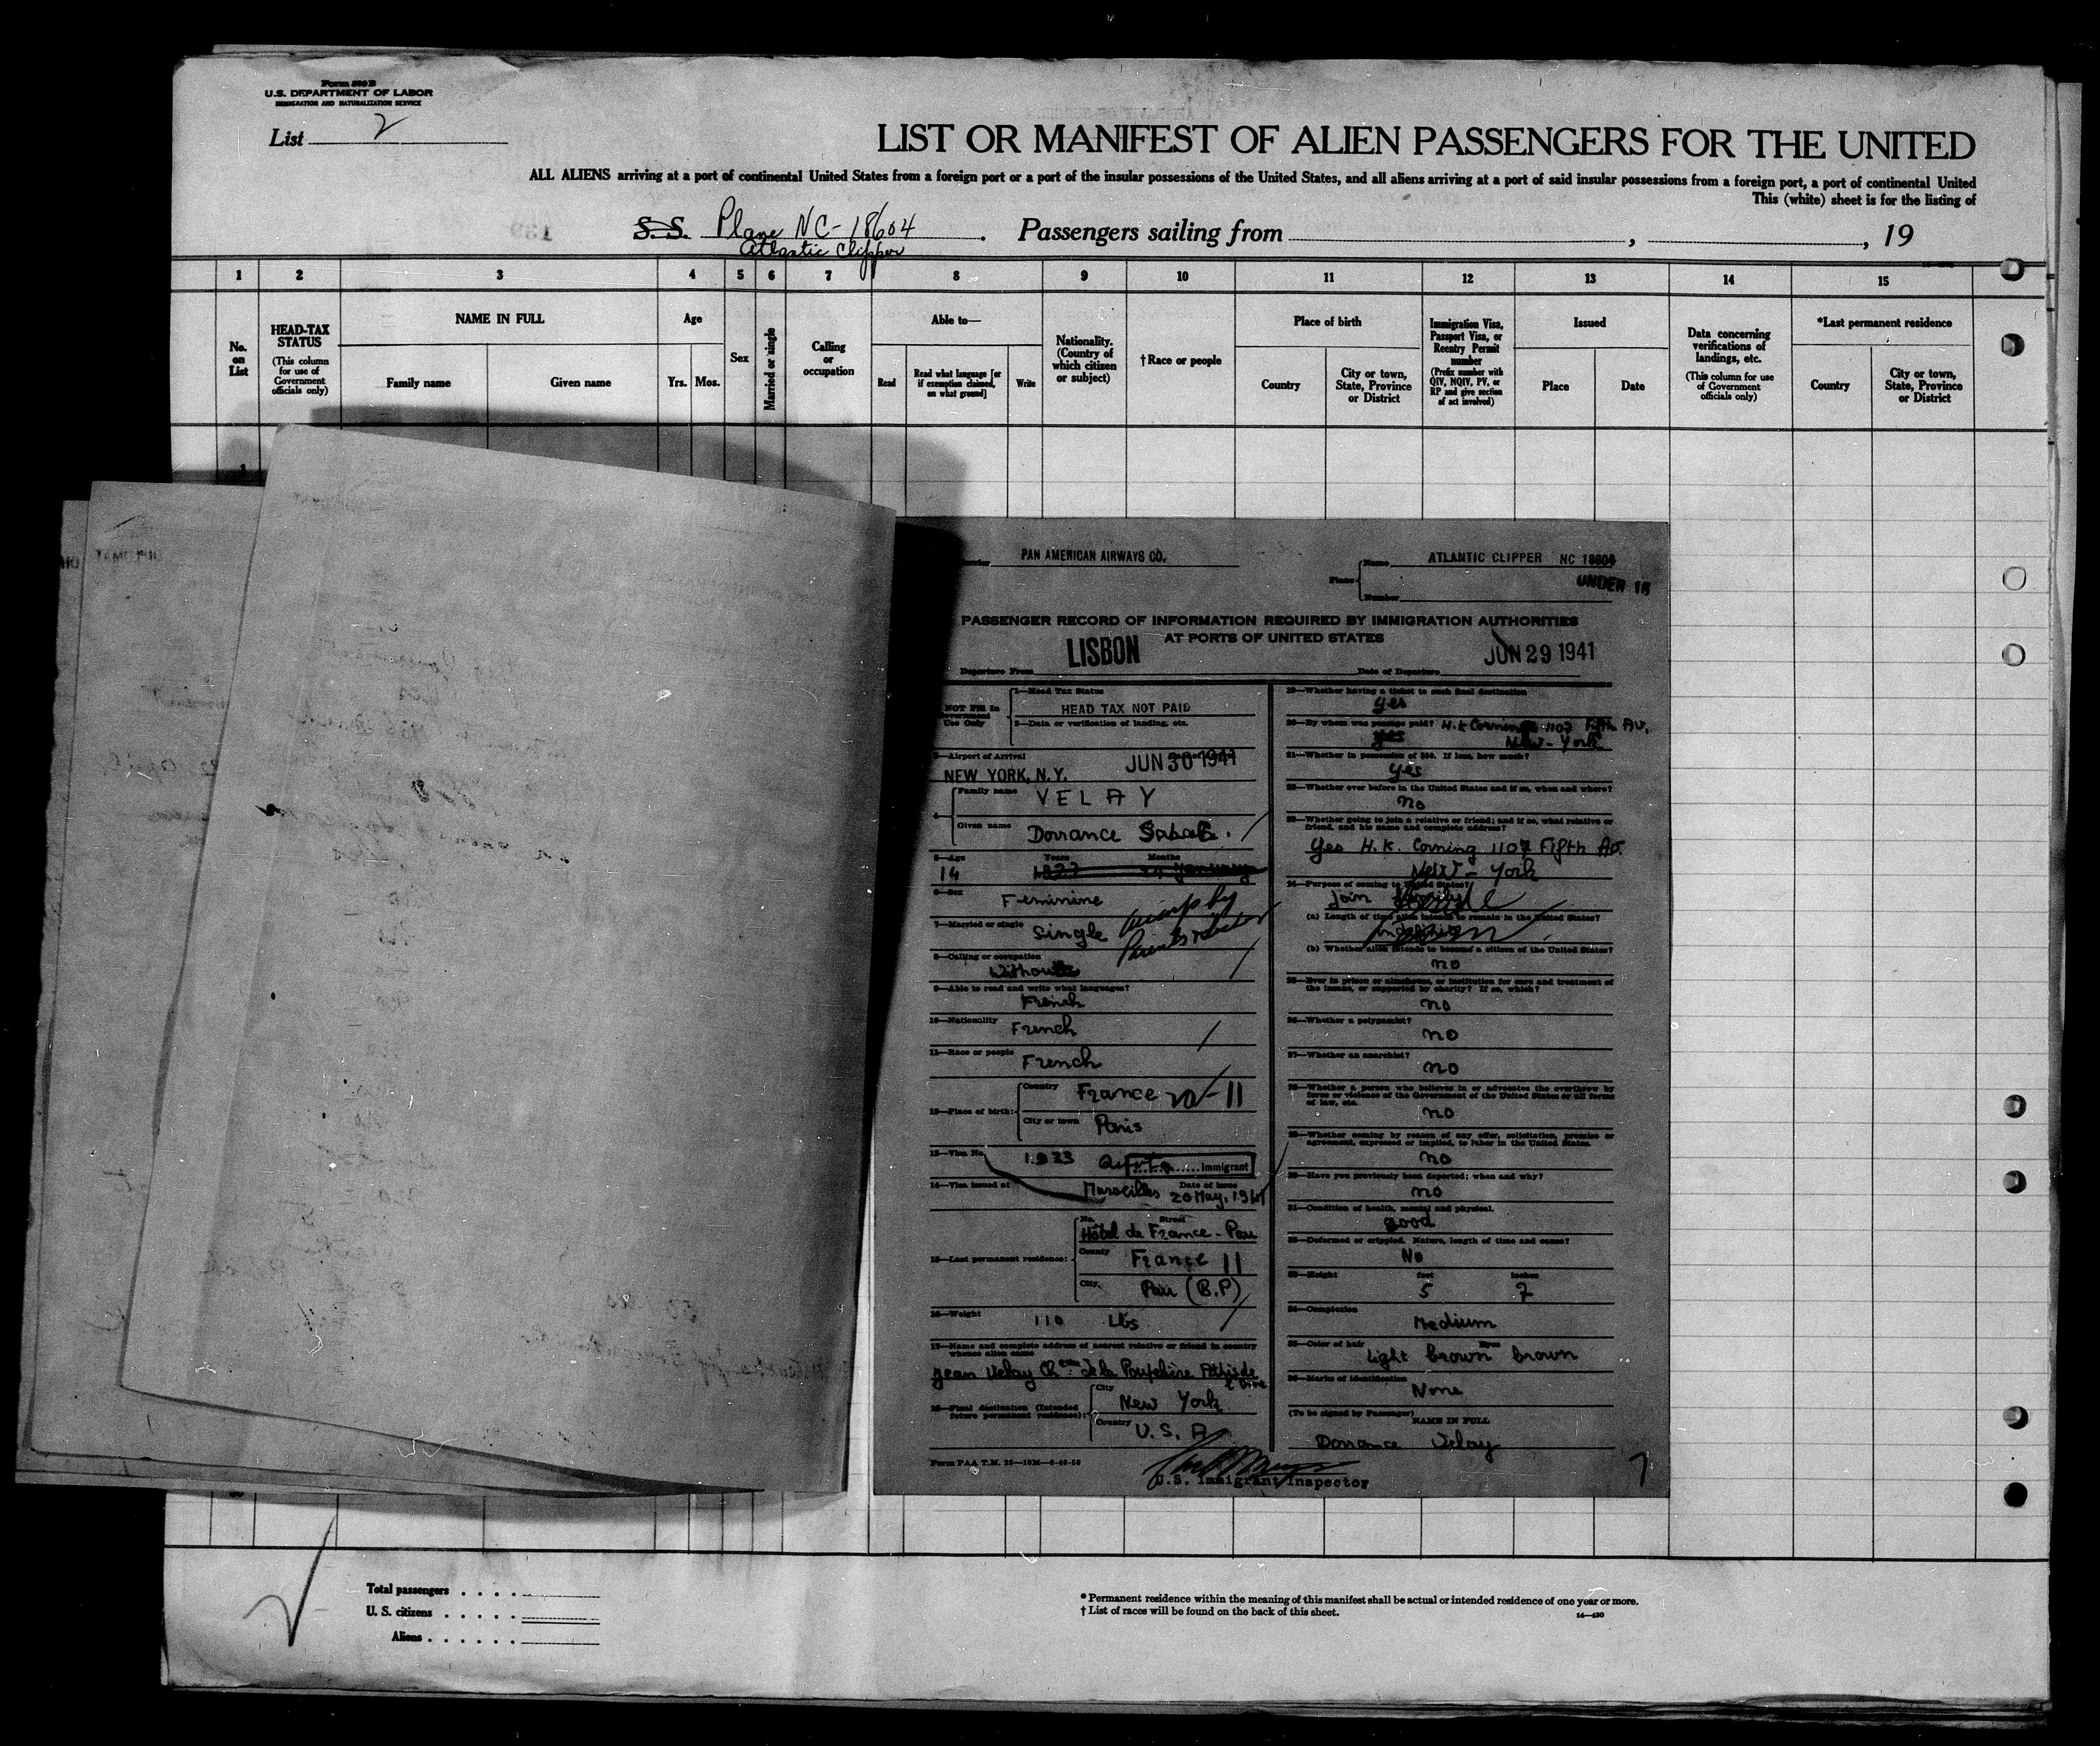 Form 500 B
U.S. DEPARTMENT OF LABOR
IMMIGRATION AND NATURALIZATION SERVICE
List 2
LIST OR MANIFEST OF ALIEN PASSENGERS FOR THE UNITED
ALL ALIENS arriving at a port of continental United States from a foreign port or a port of the insular possessions of the United States, and all aliens arriving at a port of said insular possessions from a foreign port, a port of continental United
This (white) sheet is for the listing of
S.S. Plane NC-18604 Passengers sailing from , , 19
Atlantic Clipper
1 2 3 4 5 6 7 8 9 10 11 12 13 14 15
No. on List
HEAD-TAX STATUS
(This column for use of Government officials only)
NAME IN FULL
Family name
Given name
Age
Yrs. Mos.
Sex
Married or single
Calling or occupation
Able to—
Read
Read what language [or if exemption claimed, on what ground]
Write
Nationality. (Country of which citizen or subject)
†Race or people
Place of birth
Country
City or town, State, Province or District
Immigration Visa, Passport Visa, or Reentry Permit number
(Prefix number with QIV, NQIV, PV, or RP and give section of act involved)
Issued
Place
Date
Data concerning verifications of landings, etc.
(This column for use of Government officials only)
*Last permanent residence
Country
City or town, State, Province or District
1
PAN AMERICAN AIRWAYS CO.
Plane
Name ATLANTIC CLIPPER NC 18604
Number
UNDER 16
PASSENGER RECORD OF INFORMATION REQUIRED BY IMMIGRATION AUTHORITIES
AT PORTS OF UNITED STATES
Departure From LISBON
Date of Departure JUN 29 1941
NOT Fill In Government Use Only
1—Head Tax Status
HEAD TAX NOT PAID
2—Data or verification of landing, etc.
3—Airport of Arrival
NEW YORK, N.Y. JUN 30 1941
4—
Family name VELAY
Given name Dorrance
5—Age Years Months
14
6—Sex Feminine
7—Married or single Single
8—Calling or occupation
Without
9—Able to read and write what languages?
French
10—Nationality French
11—Race or people French
12—Place of birth:
Country France 20-11
City or town Paris
13—Visa No. 1933 Immigrant
14—Visa issued at Marseilles Date of Issue 20 May, 1941
15—Last permanent residence:
No. Street
Hôtel de France - Pau
County France 11
City. Pau (B.P)
16—Weight 110 Lbs
17—Name and complete address of nearest relative or friend in country whence alien came
Jean Velay
18—Final destination (Intended future permanent residence):
City New York
Country U.S.A
Form PAA T.M. 25—10M—9-40-50
U.S. Immigrant Inspector
19—Whether having a ticket to such final destination
yes
20—By whom was passage paid? H.K Corning 1107 Fifth Av.
yes New-York
21—Whether in possession of $50. If less, how much?
yes
22—Whether ever before in the United States and if so, when and where?
no
23—Whether going to join a relative or friend; and if so, what relative or friend, and his name and complete address?
Yes H.K. Corning 1107 Fifth Av.
New-York
24—Purpose of coming to United States?
join
(a) Length of time alien intends to remain in the United States?
(b) Whether alien intends to become a citizen of the United States?
no
25—Ever in prison or almshouse, or institution for care and treatment of the insane, or supported by charity? If so, which?
no
26—Whether a polygamist?
no
27—Whether an anarchist?
no
28—Whether a person who believes in or advocates the overthrow by force or violence of the Government of the United States or all forms of law, etc.
no
29—Whether coming by reason of any offer, solicitation, promise or agreement, expressed or implied, to labor in the United States.
no
30—Have you previously been deported; when and why?
no
31—Condition of health, mental and physical.
good
32—Deformed or crippled. Nature, length of time and cause?
No
33—Height feet inches
5 7
34—Complexion
Medium
35—Color of hair Eyes
Light brown brown
36—Marks of identification
None
(To be signed by Passenger)
NAME IN FULL
Dorrance Velay
7
Total passengers
U. S. citizens
Aliens
* Permanent residence within the meaning of this manifest shall be actual or intended residence of one year or more.
† List of races will be found on the back of this sheet.
14—430